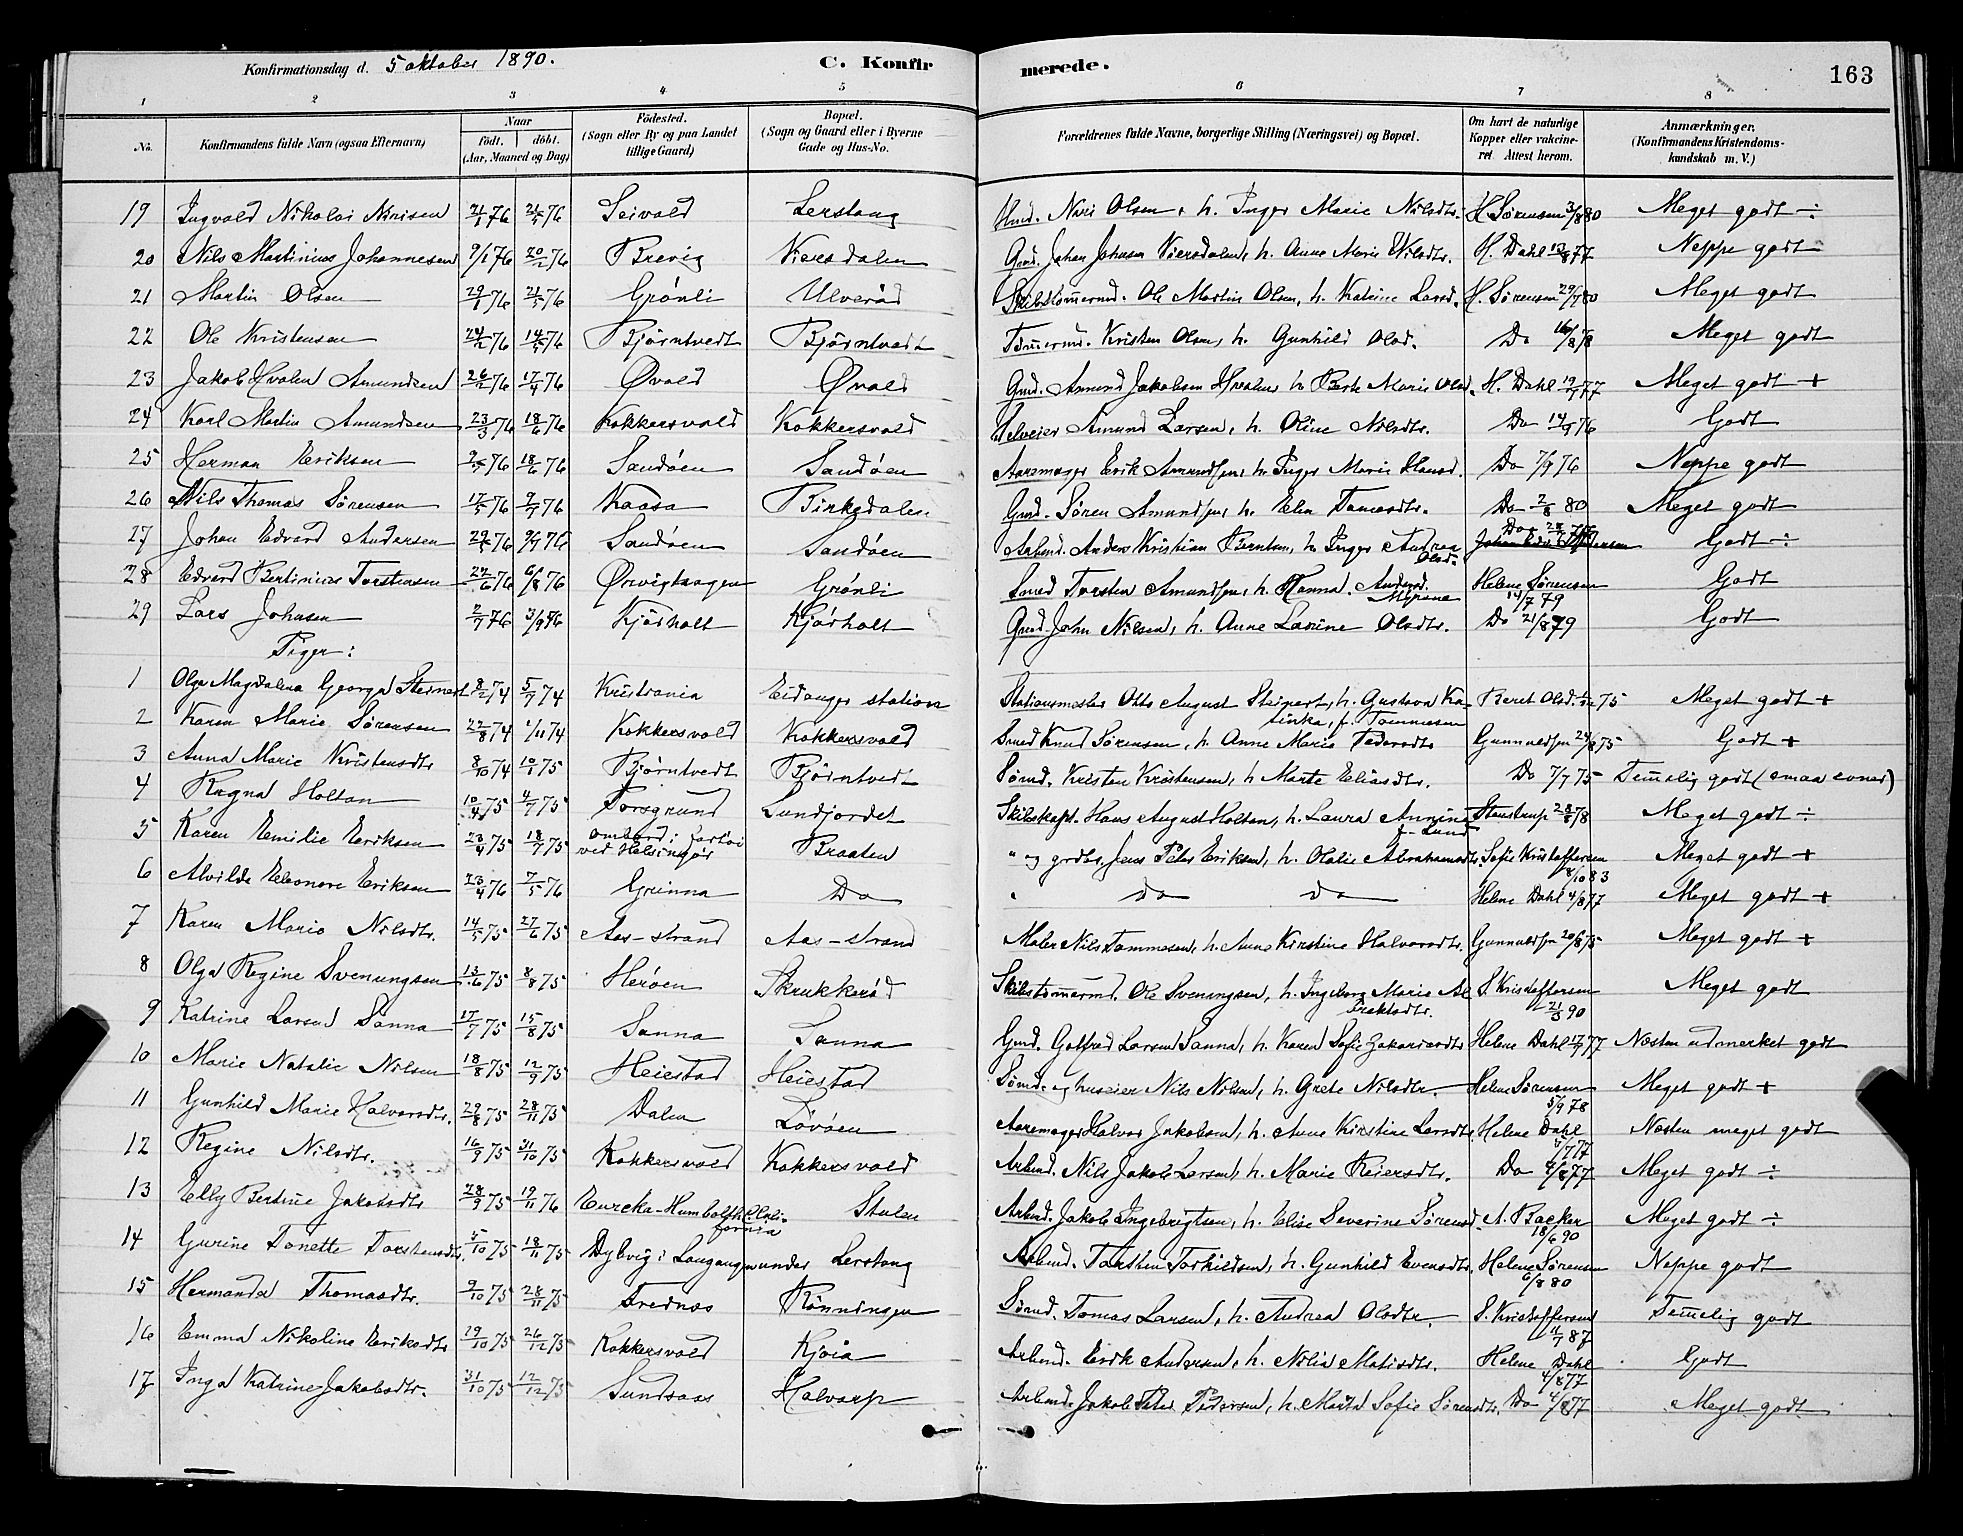 Konfirmationsdag d. 5 oktober 1890. C. Konfir merede. 163
1 2 3 4 5 6 7 8
No. Konfirmandens fulde Navn (ogsaa Efternavn) Naar födt. döbt. (Aar, Maaned og Dag) Födested. (Sogn eller By og paa Landet tillige Gaard) Bopæl. (Sogn og Gaard eller i Byerne Gade og Hus-No. Forældrenes fulde Navne, borgerlige Stilling (Næringsvei) og Bopæl. Om havt de naturlige Kopper eller vakcineret Attest herom. Anmærkninger. (Konfirmandens Kristendomskundskab m. V.)
19 Ingvald Nikolai Nirisen 21/1 76 21/5 76 Seivald Lerstang Hmd. Niri Olsen, h. Inger Marie Nilsdtr. H. Sörensen 3/8 80 Meget godt ÷
20 Nils Martinius Johannesen 9/1 76 20/2 76 Brevig Viersdalen Gmd. Johan Johnsen Viersdalen, h. Anne Marie Nilsdtr. H. Dahl 13/8 77 Neppe godt
21 Martin Olsen 29/1 76 21/5 76 Grönli Ulveröd Skibstömermd. Ole Martin Olsen, h. Katrine Larsd. H. Sörensen 29/7 80 Meget godt
22 Ole Kristensen 24/2 76 14/5 76 Björntvedt Björntvedt Tömermd. Kristen Olsen, h. Gunhild Olsd. Do 16/8 78 Meget godt
23 Jakob Hvalen Amundsen 26/2 76 17/4 76 Övald Övald Gmd. Amund Jakobsen Hvalen h. Berte Marie Olsd. H. Dahl 19/7 77 Meget godt +
24 Karl Martin Amundsen 23/3 76 18/6 76 Kokkersvold Kokkersvold Selveier Amund Larsen, h. Oline Nilsdtr. Do 14/9 76 Godt
25 Herman Eriksen 2/5 76 18/6 76 Sandöen Sandöen Aaremager Erik Amundsen, h. Inger Marie Hansd. Do 7/9 76 Neppe godt
26 Nils Thomas Sörensen 17/5 76 9/7 76 Kaasa Birkedalen Gmd. Sören Amundsen, h. Elen Tomasdtr. Do 2/8 80 Meget godt
27 Johan Edvard Andersen 29/5 76 9/7 76 Sandöen Sandöen Arbmd. Anders Kristian Berntsen, h. Inger Andrea Olsd. Do 28/7 76 Godt ÷
28 Edvard Bertinius Torstensen 22/6 76 6/8 76 Örvigskogen Grönli Smed Torsten Amundsen, h. Hanna Andersd. Myrene Helene Sörensen 14/7 79 Godt
29 Lars Johnsen 2/7 76 3/9 76 Kjörholt Kjörholt Gmd. John Nilsen, h. Anne Larine Olsdtr. Do 21/8 79 Godt
Piger:
1 Olga Magdalena Georga Steinert 8/2 74 5/7 74 Kristiania Eidanger station Stationsmester Otto August Steinert, h. Gustava Katinka, f. Tommesen Beret Olsd. 75 Meget godt +
2 Karen Marie Sörensen 22/8 74 1/11 74 Kokkersvold Kokkersvold Smed Knud Sörensen, h. Anne Marie Pedersdtr Gunnuldsen 24/8 75 Godt +
3 Anna Marie Kristensdtr 8/10 74 10/1 75 Björntvedt Björntvedt Sömd. Kristen Kristensen, h. Marte Eliasdtr. Do 7/7 75 Temelig godt (smaa evner)
4 Ragna Holtan 10/4 75 4/7 75 Porsgrund Sundjordet Skibskapt. Hans August Holtan, h. Laura Annine f. Lund Stenstrup 28/8 78 Meget godt ÷
5 Karen Emilie Eriksen 23/4 75 18/7 75 ombord i fartöi ved Helsingör Braaten " og grdbr. Jens Peter Eriksen, h. Olalie Abrahamsdtr. Sofie Kristoffersen 8/10 83 Meget godt +
6 Alvilde Eleonore Eriksen 23/4 76 7/5 76 Grinna Do " Do Do Helene Dahl 4/8 77 Meget godt +
7 Karen Marie Nilsdtr. 14/5 75 27/6 75 Aas-strand Aas-strand Maler Nils Tommesen, h. Anne Kirstine Halvorsdtr. Gunnuldsen 20/8 75 Meget godt +
8 Olga Regine Svenungsen 13/6 75 8/8 75 Heröen Skrukkeröd Skibstömermd. Ole Svenungsen, h. Ingeborg Marie Albrektsdtr. S. Kristoffersen 21/3 90 Meget godt
9 Katrine Larsen Sanna 17/7 75 15/8 75 Sanna Sanna Gmd. Gotfred Larsen Sanna, h. Karen Sofie Zakariasdtr Helene Dahl 17/7 77 Næsten udmerket godt
10 Marie Natalie Nilsen 18/8 75 12/9 75 Heiestad Heiestad Sömd. og huseier Nils Nilsen, h. Grete Nilsdtr. Helene Sörensen 5/9 78 Meget godt +
11 Gunhild Marie Halvorsdtr. 29/8 75 28/11 75 Dalen Lövöen Aaremager Halvor Jakobsen, h. Anne Kirstine Larsdtr Helene Dahl 5/7 77 Næsten meget godt
12 Regine Nilsdtr. 16/9 75 31/10 75 Kokkersvold Kokkersvold Arbmd. Nils Jakob Larsen, h. Marie Reiersdtr. Do 4/8 77 Meget godt ÷
13 Elly Bertine Jakobsdtr 28/9 75 19/11 76 Eureka-Humboldth Californien Stulen Arbmd. Jakob Ingebrigtsen, h. Elise Severine Sörensd. A. Backer 18/6 90 Meget godt ÷
14 Gurine Tonette Torstensdtr. 5/10 75 18/11 75 Dybvig i Langangen under Lerstang Arbmd. Torsten Torkildsen, h. Gunhild Evensdtr. Helene Sörensen 6/8 80 Neppe godt
15 Hermanda Thomasdtr. 9/10 75 28/11 75 Trednæs Rönningen Sömd. Tomas Larsen, h. Andrea Olsdtr. S. Kristoffersen 11/7 87 Temelig godt
16 Emma Nikoline Eriksdtr 19/10 75 26/12 75 Kokkersvold Kjöia Arbmd. Erik Andersen, h. Nilia Matisdtr. Helene Dahl 4/8 77 Godt
17 Inga Katrine Jakobsdtr. 31/10 75 12/12 75 Sundsaas Halvarp Arbmd. Jakob Peter Pedersen, h. Marta Sofie Sörensdtr. Do 4/8 77 Meget godt